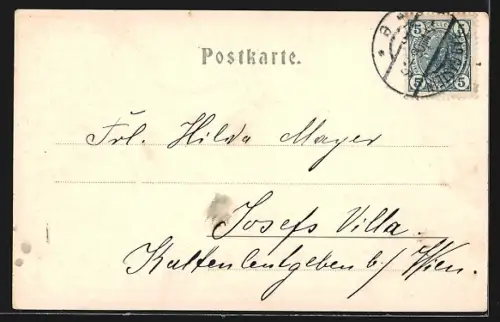 Postkarte.
5 5
5 5
Frl. Hilda Mayer
Josefs Villa.
Kaltenleutgeben b/ Wien.